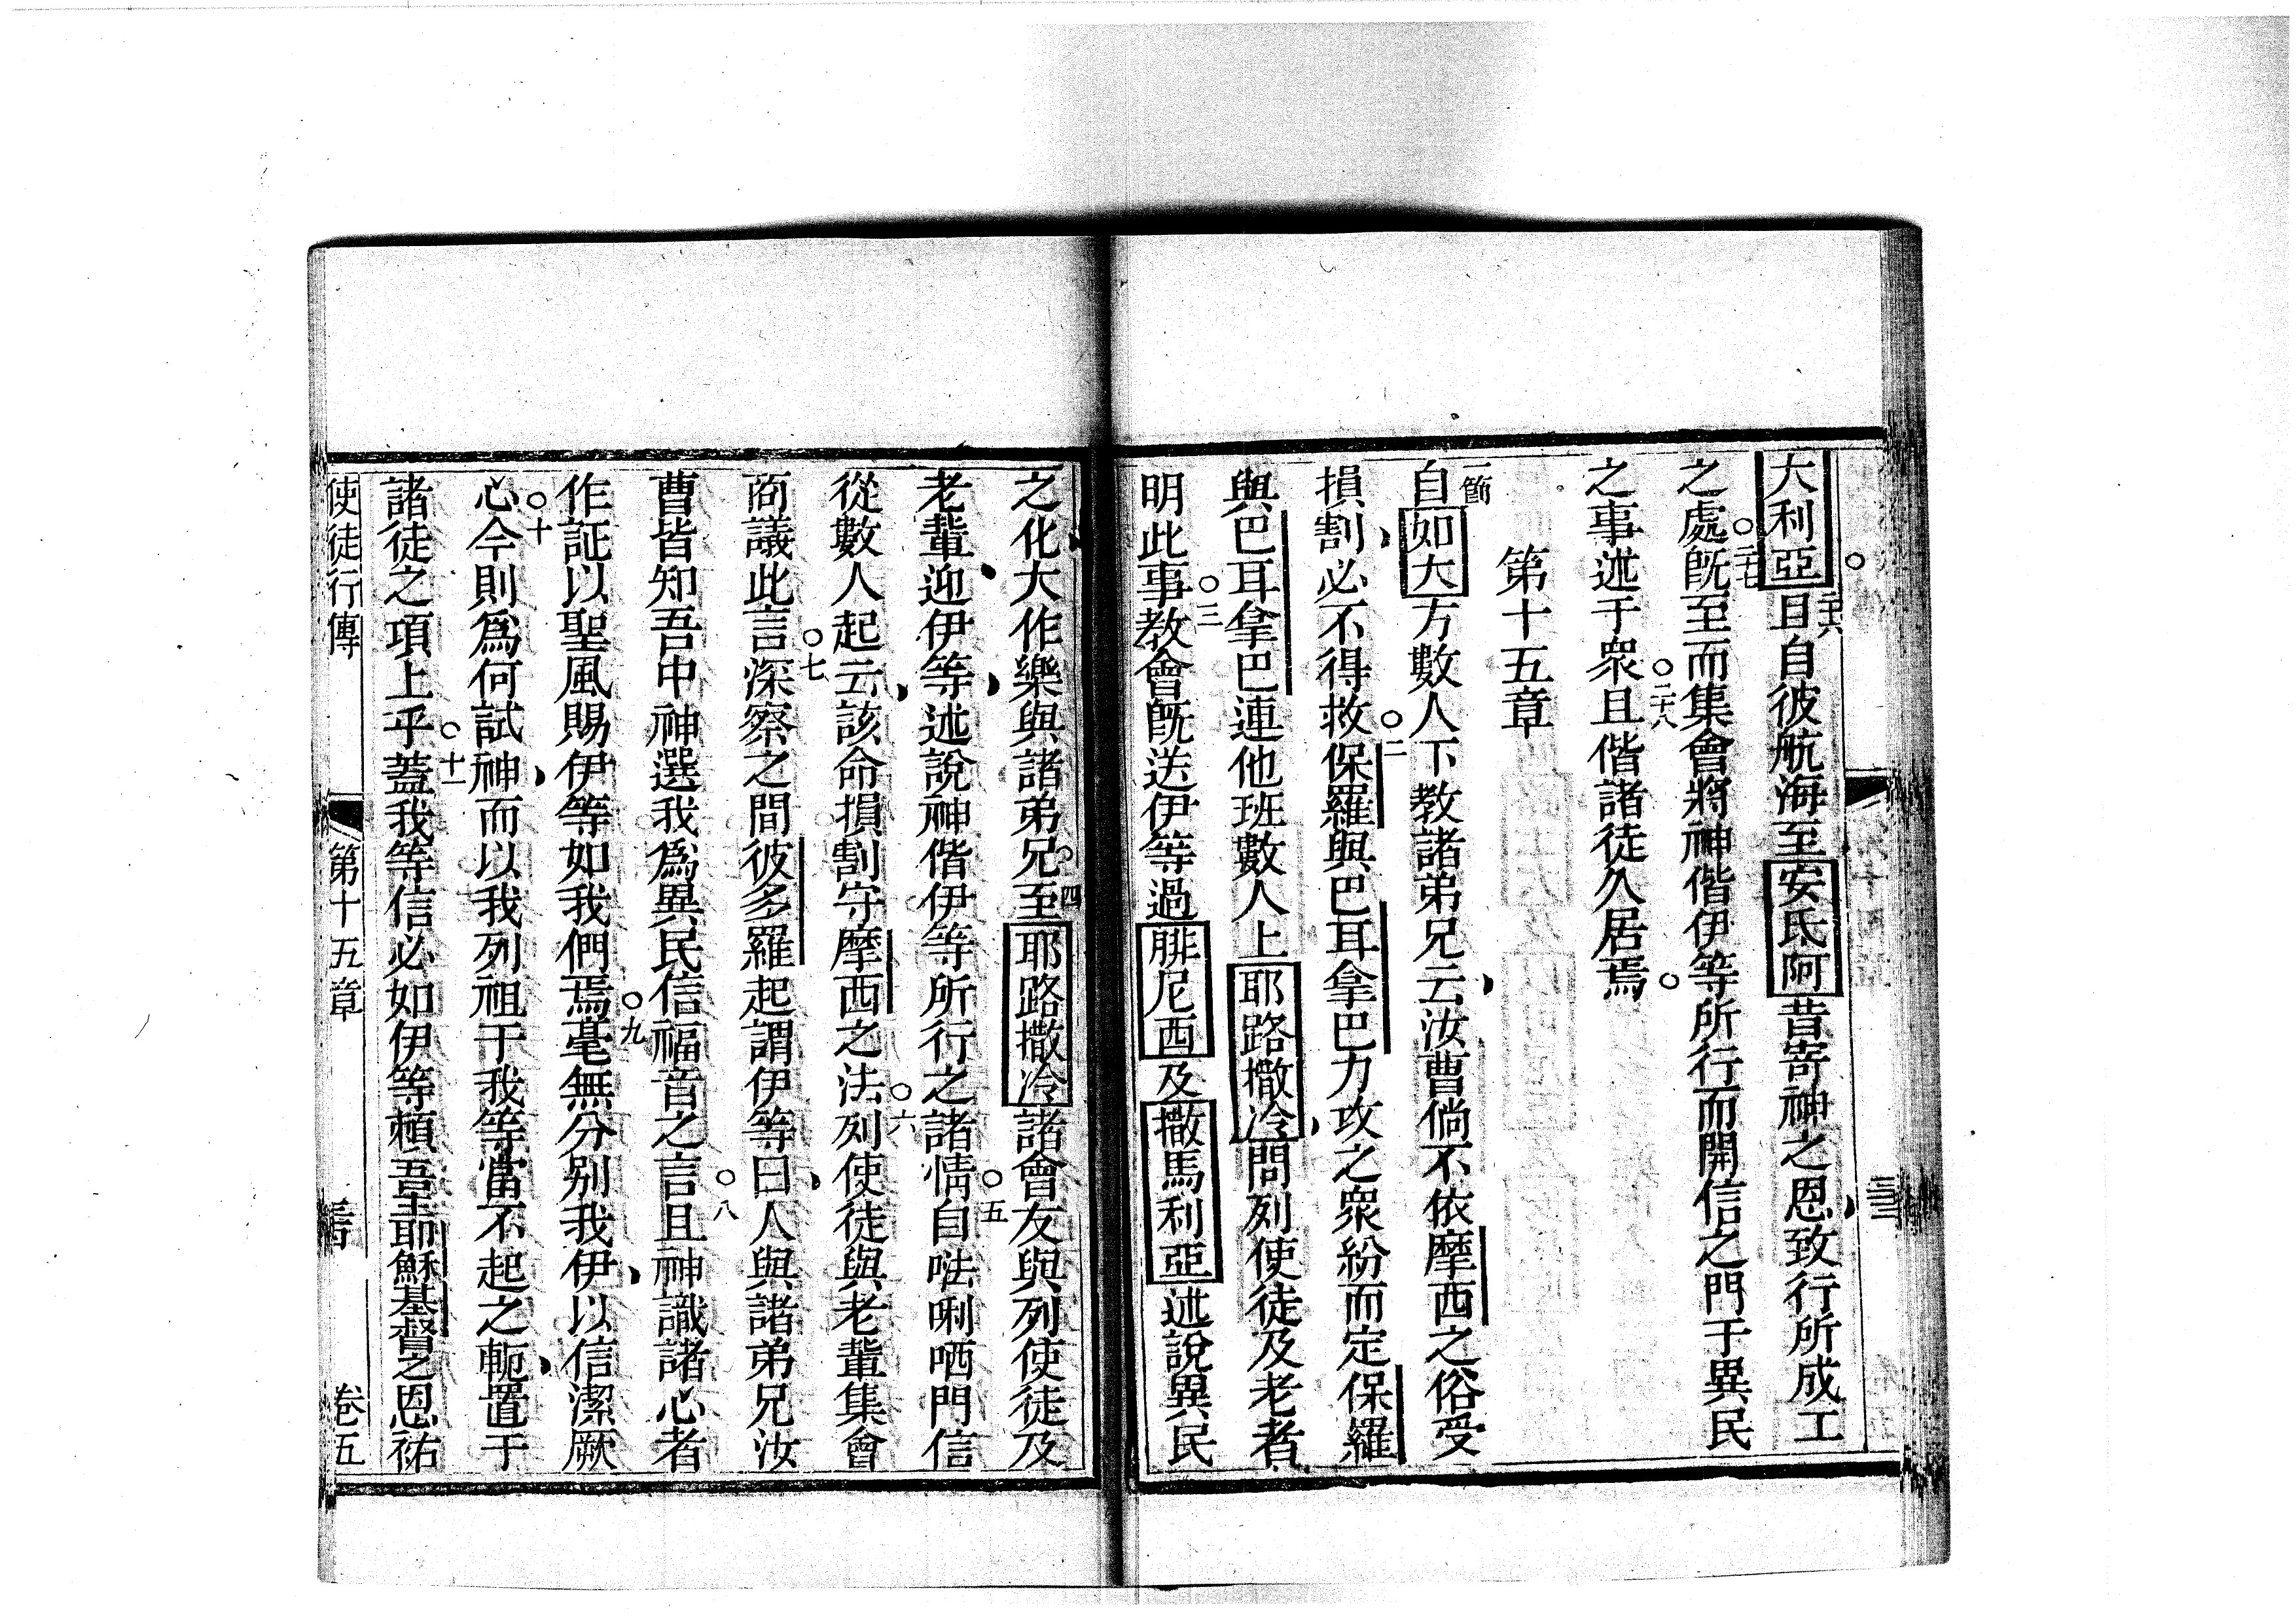 大利亞○二六日自彼航海至安氐阿昔寄神之恩致行所成工
之處○二七旣至而集會將神偕伊等所行而開信之門于異民
之事述于衆○二十八且偕諸徒久居焉○
第十五章
一節自如大方數人下教諸弟兄云汝曹倘不依摩西之俗受
損割必不得救○二保羅與巴耳拿巴力攻之衆紛而定保羅
與巴耳拿巴連他班數人上耶路撒冷問列使徒及老者
明此事○三教會旣送伊等過腓尼西及撒馬利亞述說異民
之化大作樂與諸弟兄○四至耶路撒冷諸會友與列使徒及
老輩迎伊等述說神偕伊等所行之諸情○五自㕸唎哂門信
從數人起云該命損割守摩西之法○六列使徒與老輩集會
商議此言○七深察之間彼多羅起謂伊等曰人與諸弟兄汝
曹皆知吾中神選我爲異民信福音之言○八且神識諸心者
作証以聖風賜伊等如我們焉○九毫無分別我伊以信潔厥
心○十今則爲何試神而以我列祖于我等當不起之軛置于
諸徒之項上乎○十一蓋我等信必如伊等賴吾主耶穌基督之恩祐
使徒行傳 第十五章 卷五